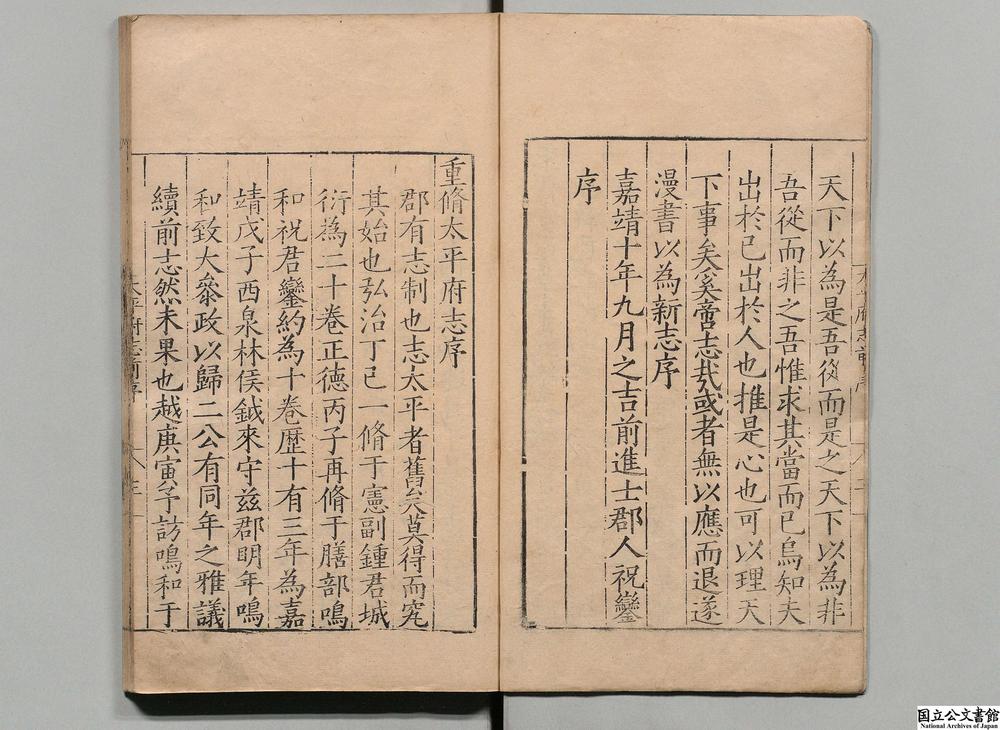 天下以為是吾從而是之天下以為非
吾從而非之吾惟求其當而已烏知夫
出於已出於人也推是心也可以理天
下事矣奚啻志㢤或者無以應而退遂
漫書以為新志序
嘉靖十年九月之吉前進士郡人祝鑾
序
重脩太平府志序
郡有志制也志太平者舊矣莫得而究
其始也弘治丁巳一脩于憲副鍾君城
衍為二十卷正德丙子再脩于膳部鳴
和祝君鑾約為十卷歷十有三年為嘉
靖戊子西泉林侯鉞來守兹郡明年鳴
和致大叅政以歸二公有同年之雅議
續前志然未果也越庚寅予訪鳴和于
国立公文書館
National Archives of Japan